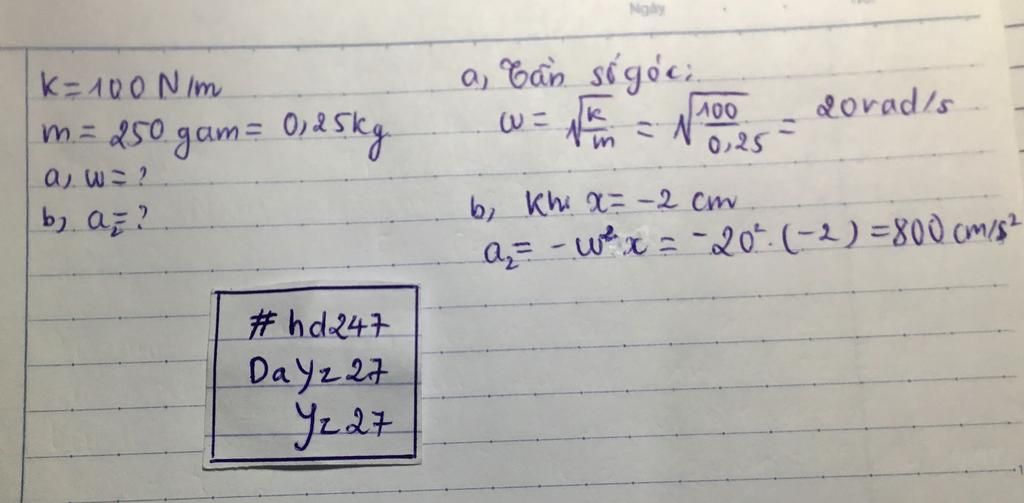 Ngày
K = 100 N/m
m = 250 gam = 0,25kg
a, w = ?
b, a₂ = ?
a, Tần số góc:
w = √(k/m) = √(100/0,25) = 20 rad/s
b, Khi x = -2 cm
a₂ = -w² x = -20². (-2) = 800 cm/s²
#hd247
DaYz27
Yz27